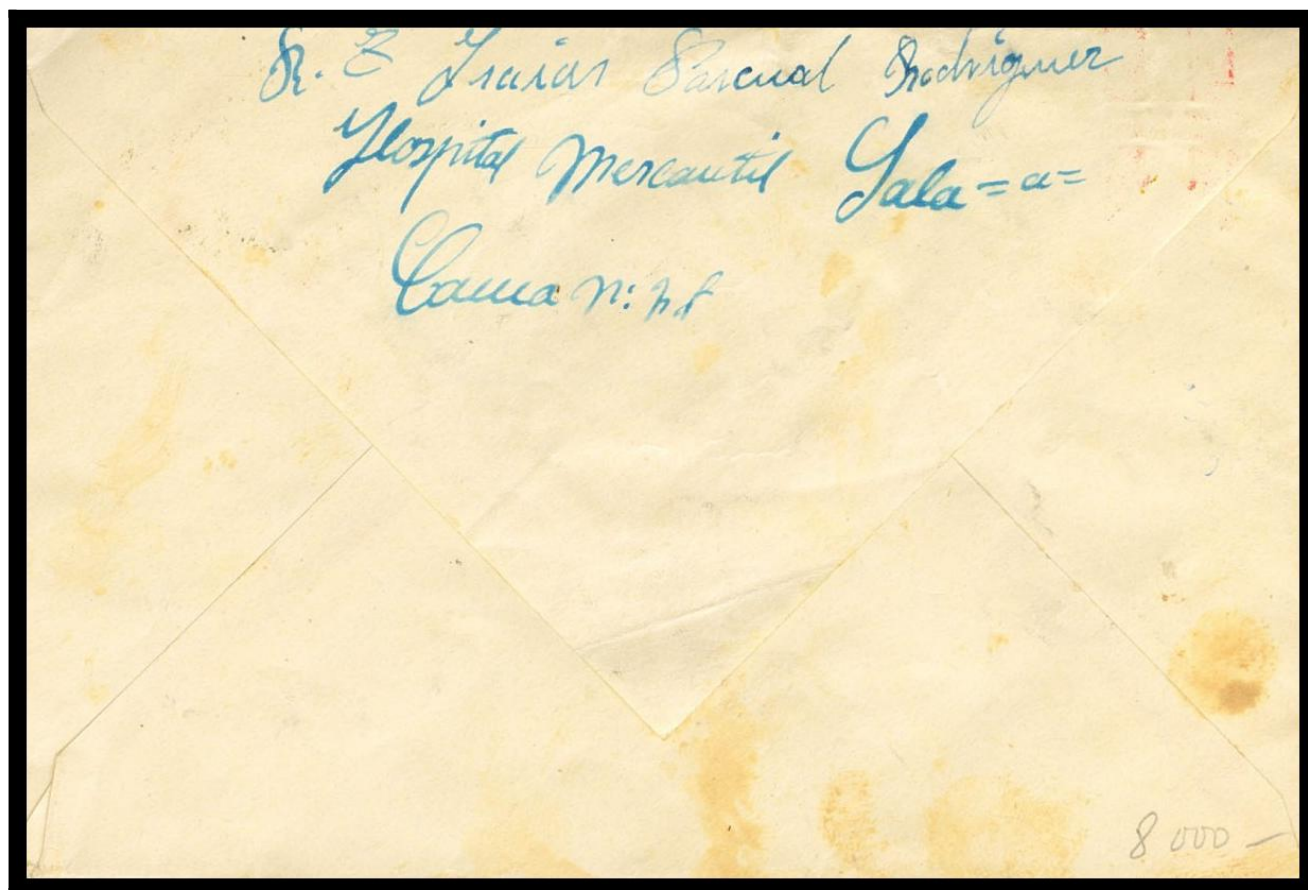 R. E Isaias Pascual Rodriguez
Hospital Mercantil Sala = a =
Cama n:
8 000 —